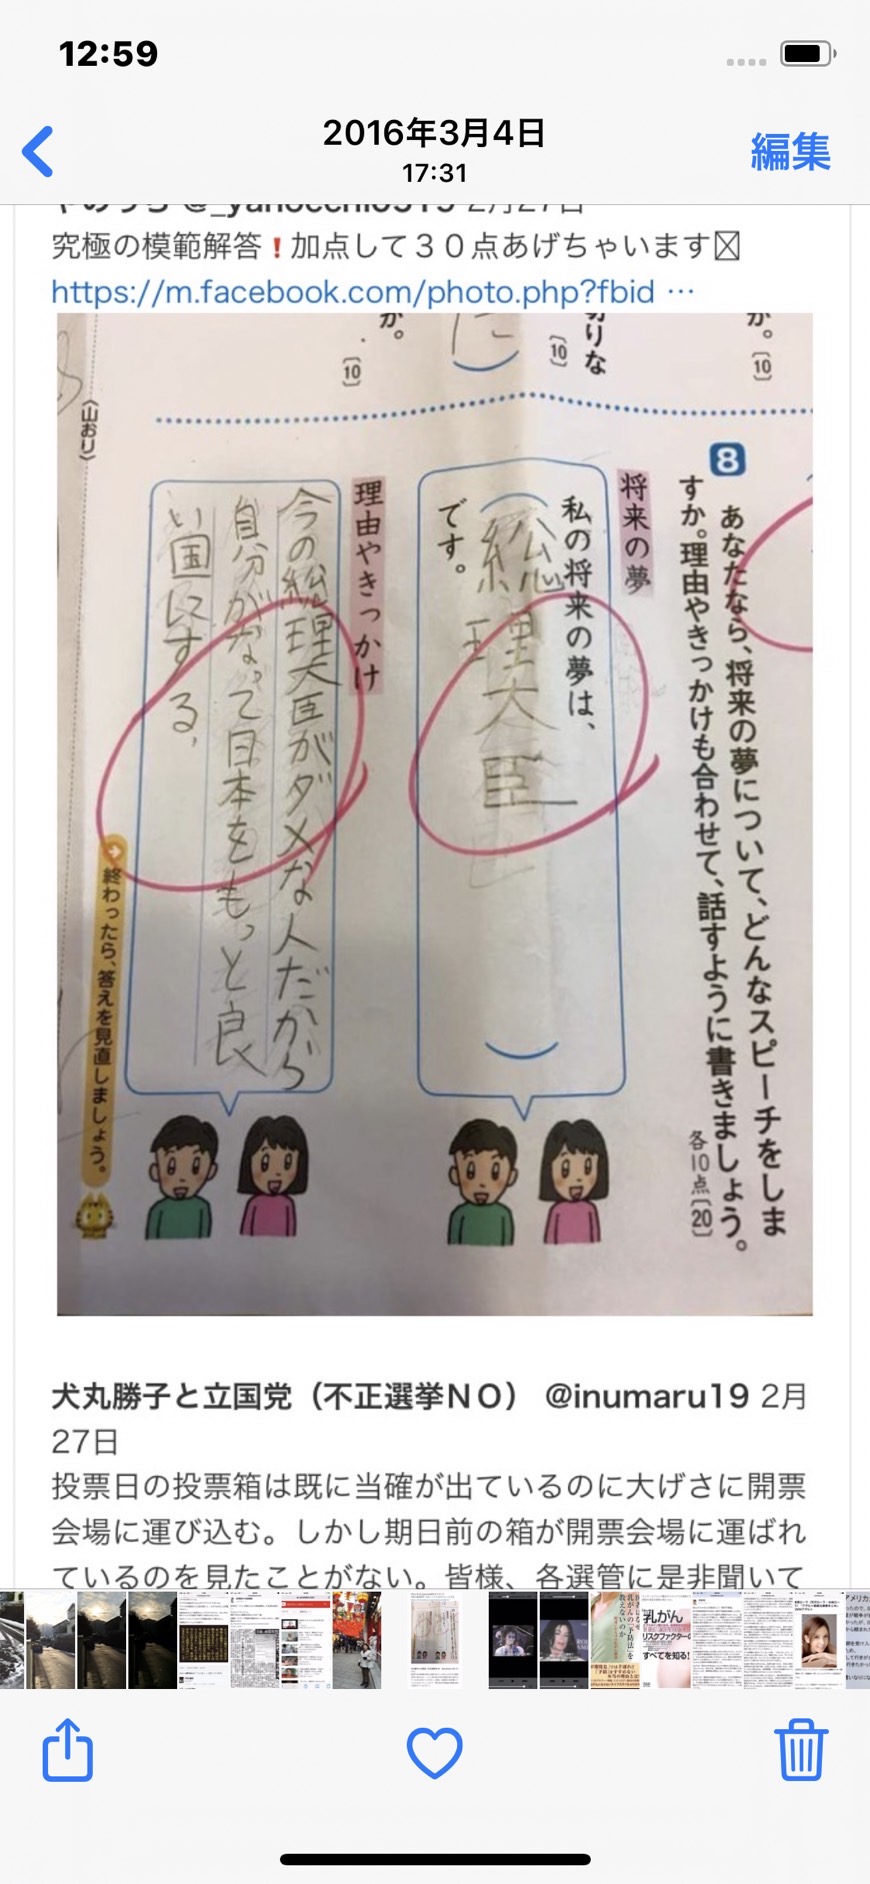 12:59
2016年3月4日
17:31
編集
究極の模範解答❗加点して30点あげちゃいます
https://m.facebook.com/photo.php?fbid …
か。
〔10〕
に
切りな
〔10〕
か。
〔10〕
〈山おり〉
8
あなたなら、将来の夢について、どんなスピーチをしま
すか。理由やきっかけも合わせて、話すように書きましょう。
各10点〔20〕
将来の夢
私の将来の夢は、
総理大臣
です。
理由やきっかけ
今の総理大臣がダメな人だから
自分がなって日本をもっと良
い国にする。
終わったら、答えを見直しましょう。
犬丸勝子と立国党（不正選挙NO） @inumaru19 2月
27日
投票日の投票箱は既に当確が出ているのに大げさに開票
会場に運び込む。しかし期日前の箱が開票会場に運ばれ
ているのを見たことがない。皆様、各選管に是非聞いて
乳がん
リスクファクター
すべてを知る!